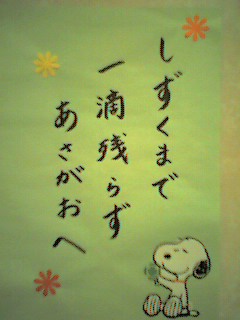 しずくまで
一滴残らず
あさがおへ